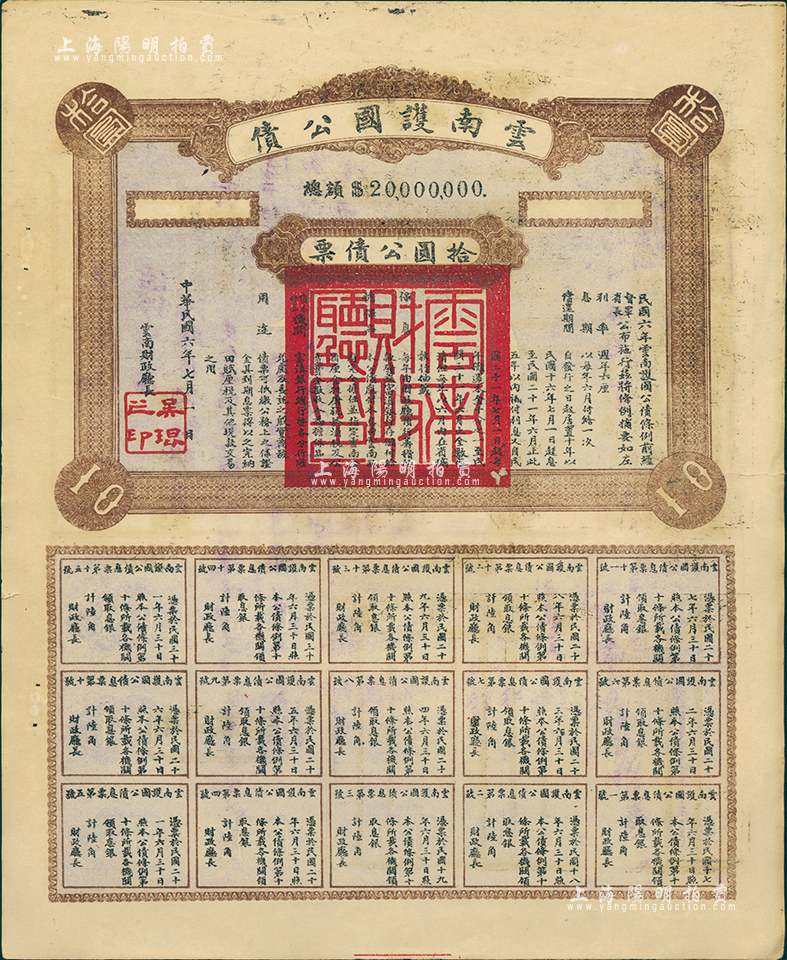 上海陽明拍賣
www.yangmingauction.com
拾圓
拾圓
雲南護國公債
總額 20,000,000.
拾圓公債票
民國六年雲南護國公債條例前經
督軍
省長
公布施行茲將條例摘要如左
利率 週年六厘
息期 以每年六月付給一次
償還期間 自發行之日起居置十年以
民國十六年七月一日起息
至民國二十一年六月止此
五年以內祇付利息又自民
國二十一年七月一日起每
用途 債票可抵繳公務上之保證
金其到期息票得以之完納
田賦厘稅及其他現款交易
之用
中華民國六年七月一日
雲南財政廳長
吳琨之印
上海陽明拍賣
www.yangmingauction.com
10
10
雲南護國公債息票第十一號
憑票於民國二十
七年六月三十日
照本公債條例第
十條所載各機關
領取息銀
計陸角
財政廳長
雲南護國公債息票第十二號
憑票於民國二十
八年六月三十日
照本公債條例第
十條所載各機關
領取息銀
計陸角
財政廳長
雲南護國公債息票第十三號
憑票於民國二十
九年六月三十日
照本公債條例第
十條所載各機關
領取息銀
計陸角
財政廳長
雲南護國公債息票第十四號
憑票於民國三十
年六月三十日照
本公債條例第十
條所載各機關領
取息銀
計陸角
財政廳長
雲南護國公債息票第十五號
憑票於民國三十
一年六月三十日
照本公債條例第
十條所載各機關
領取息銀
計陸角
財政廳長
雲南護國公債息票第六號
憑票於民國二十
二年六月三十日
照本公債條例第
十條所載各機關
領取息銀
計陸角
財政廳長
雲南護國公債息票第七號
憑票於民國二十
三年六月三十日
照本公債條例第
十條所載各機關
領取息銀
計陸角
財政廳長
雲南護國公債息票第八號
憑票於民國二十
四年六月三十日
照本公債條例第
十條所載各機關
領取息銀
計陸角
財政廳長
雲南護國公債息票第九號
憑票於民國二十
五年六月三十日
照本公債條例第
十條所載各機關
領取息銀
計陸角
財政廳長
雲南護國公債息票第十號
憑票於民國二十
六年六月三十日
照本公債條例第
十條所載各機關
領取息銀
計陸角
財政廳長
雲南護國公債息票第一號
憑票於民國十七
年六月三十日照
本公債條例第十
條所載各機關領
取息銀
計陸角
財政廳長
雲南護國公債息票第二號
憑票於民國十八
年六月三十日照
本公債條例第十
條所載各機關領
取息銀
計陸角
財政廳長
雲南護國公債息票第三號
憑票於民國十九
年六月三十日照
本公債條例第十
條所載各機關領
取息銀
計陸角
財政廳長
雲南護國公債息票第四號
憑票於民國二十
年六月三十日照
本公債條例第十
條所載各機關領
取息銀
計陸角
財政廳長
雲南護國公債息票第五號
憑票於民國二十
一年六月三十日
照本公債條例第
十條所載各機關
領取息銀
計陸角
財政廳長
上海陽明拍賣
www.yangmingauction.com